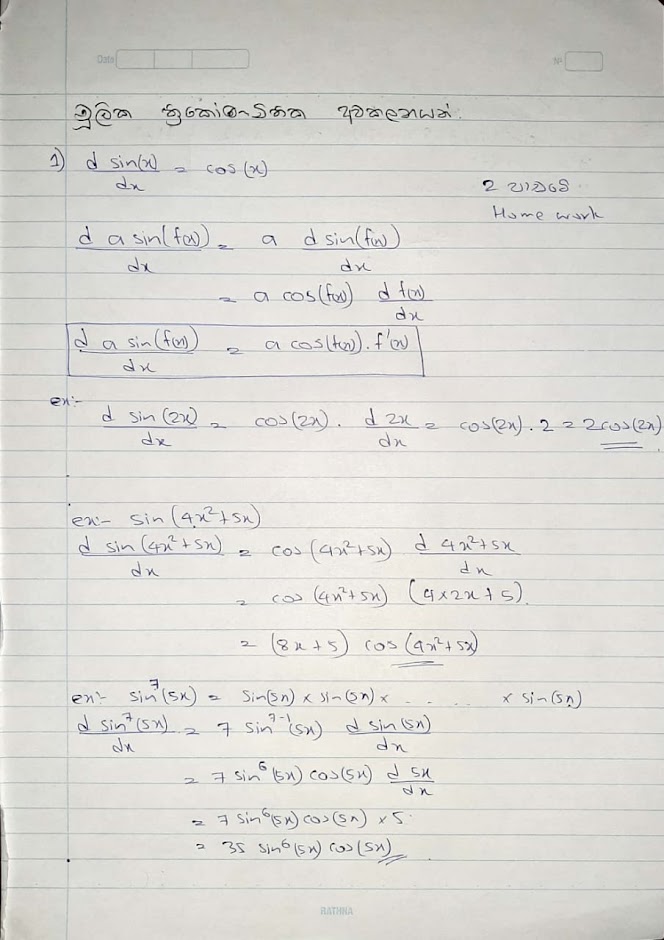 Date
No
මූලික ත්‍රිකෝණමිතික අවකලනයන්.
1) d sin(x)/dx = cos(x)
2 පාඩමේ
Home work
d a sin(f(x))/dx = a d sin(f(x))/dx
= a cos(f(x)) d f(x)/dx
d a sin(f(x))/dx = a cos(f(x)). f'(x)
ex:-
d sin(2x)/dx = cos(2x). d 2x/dx = cos(2x). 2 = 2cos(2x)
ex:- sin(4x²+5x)
d sin(4x²+5x)/dx = cos(4x²+5x) d 4x²+5x/dx
= cos(4x²+5x) (4×2x+5).
= (8x+5) cos(4x²+5x)
ex:- sin⁷(5x) = sin(5x) × sin(5x) × . . . . . × sin(5x)
d sin⁷(5x)/dx = 7 sin⁷⁻¹(5x) d sin(5x)/dx
= 7 sin⁶(5x) cos(5x) d 5x/dx
= 7 sin⁶(5x) cos(5x) × 5
= 35 sin⁶(5x) cos(5x)
RATHNA